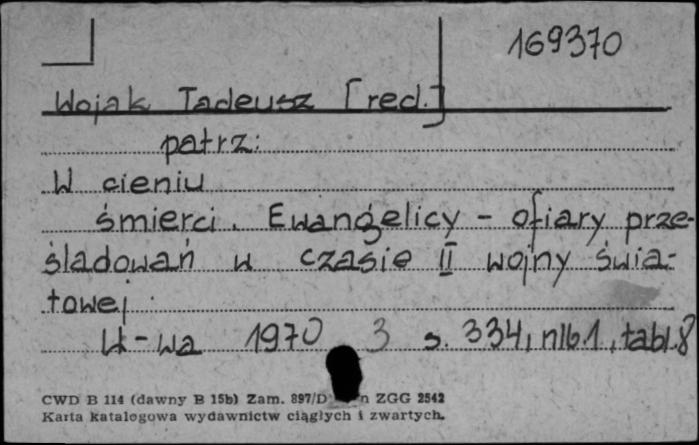 169370
Wojak Tadeusz [red.]
patrz:
W cieniu
śmierci. Ewangelicy - ofiary prze-
śladowań w czasie II wojny świa-
towej
W-wa 1970 3 s. 334, nlb.1, tabl.8
CWD B 114 (dawny B 15b) Zam. 897/D n ZGG 2542
Karta katalogowa wydawnictw ciągłych i zwartych.